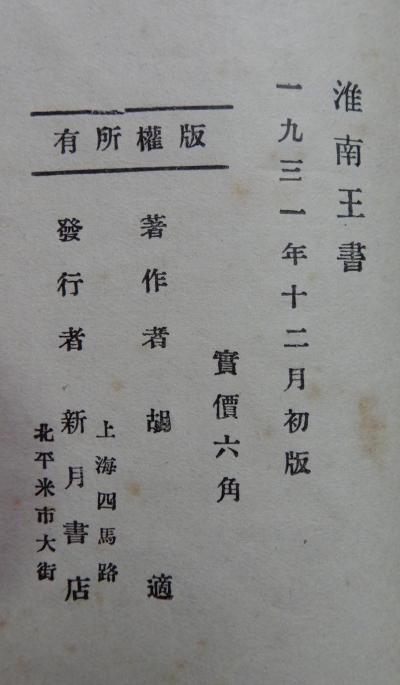 淮南王書
一九三一年十二月初版
實價六角
版權所有
著作者 胡適
發行者 新月書店
上海四馬路
北平米市大街